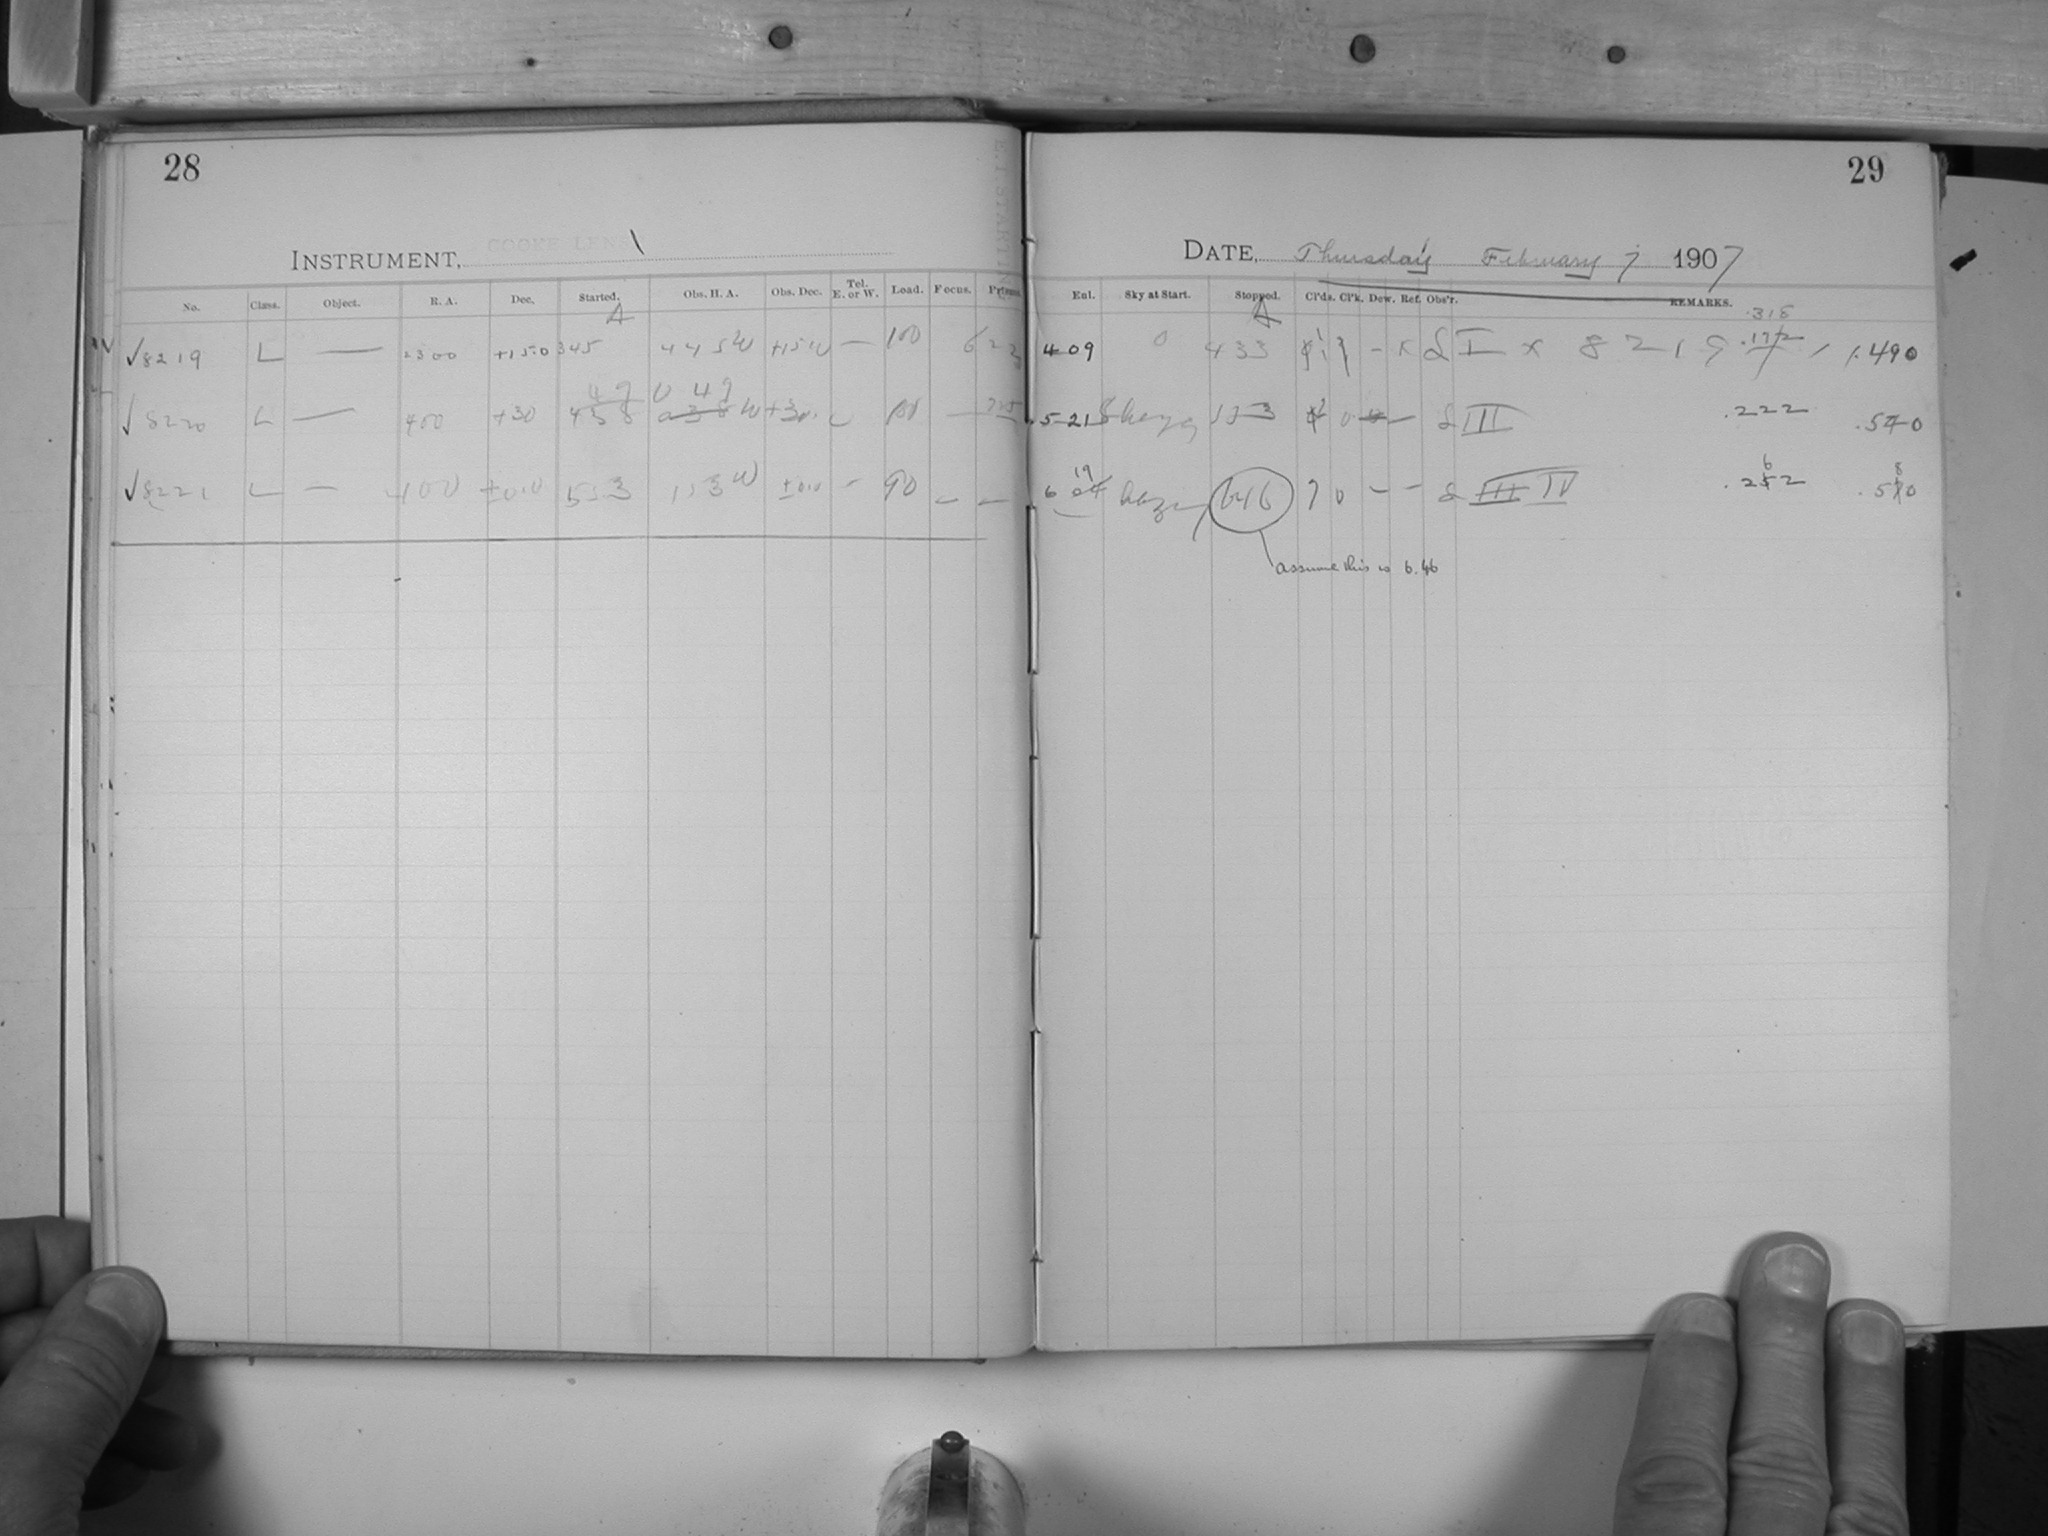 28
INSTRUMENT, COOKE LENS
No. Class. Object. R. A. Dec. Started. Obs. H. A. Obs. Dec. Tel. E. or W. Load. Focus.
A
√8219 L — 2300 +15.0 345 445W +15.0 — 100
49 0 49
√8220 L — 400 +30 458 038W +30.0
√8221 L — 400 ±0.0 553 153W ±0.0 — 90 — —
29
DATE, Thursday February 7 1907
Enl. Sky at Start. Stopped. Cl'ds. Cl'k. Dew. Ref. Obs'r. REMARKS.
A .318
4 09 0 433 I x 8219 .172 1.490
5 21 hazy 553 III .222 .540
19 6 8
6 04 hazy 646 7 0 — — III IV .252 .570
assume this is 6.46